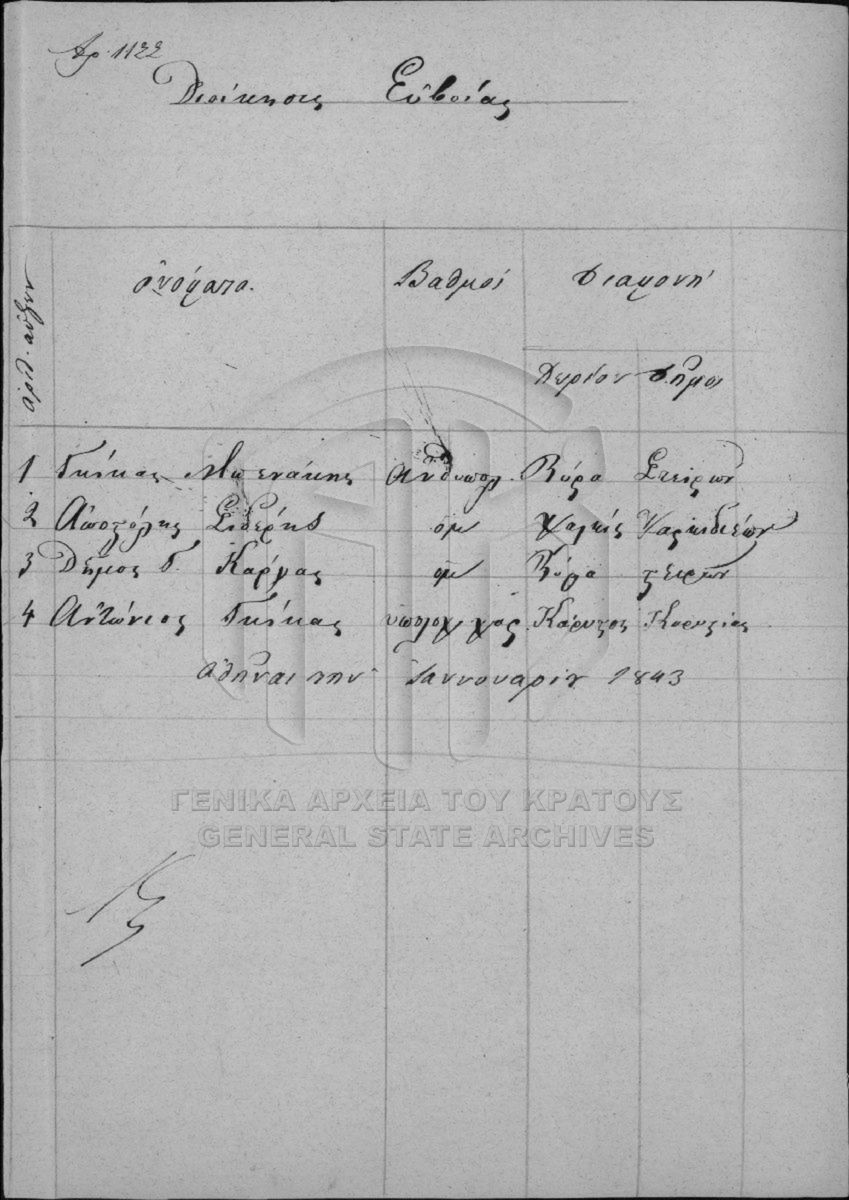 Αρ. 1122
Διοίκησις Ευβοίας
αριθ. αύξων
ὀνόματα. Βαθμοί Διαμονή
Χωρίον Δήμοι
1 Γκίκας Μπενάκης Ανθυπολ. Κύμα Στειρων
2 Αποστόλης Σιδέρης ομ Χαλκίς Χαλκιδέων
3 Δήμος Γ. Κάργας ομ Στειρων
4 Αντώνιος Γκίκας υπολοχ. χορ. Κάρυστος Καρυστίας
Αθήναι την Ιαννουαρίου 1843
ΓΕΝΙΚΑ ΑΡΧΕΙΑ ΤΟΥ ΚΡΑΤΟΥΣ
GENERAL STATE ARCHIVES